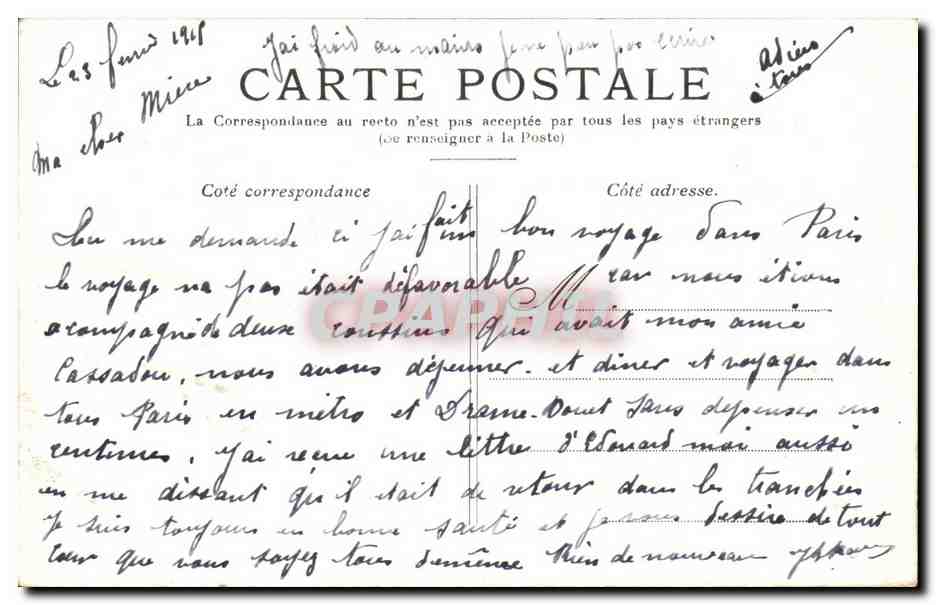 Le 23 fevrié 1915
J'ai froid au mains je ne peu pas ecrire
adieu
à tous
CARTE POSTALE
La Correspondance au recto n'est pas acceptée par tous les pays étrangers
(Se renseigner à la Poste)
Ma cher Mière
Coté correspondance
Côté adresse.
Tu me demande ci j'ai fait un bon voyage dans Paris
le voyage na pas était défavorable car nous étions
M
CPARAMA
acompagné de deux coussins que avait mon amie
Cassadou, nous avons déjeuner et diner et voyager dans
tous Paris en métro et Drame-Douet sans depenser un
centimes, j'ai recue une lettre d'Edouard moi aussi
en me dissant qu'il était de retour dans les tranchées
Je suis toujours en bonne santé et je vous dessire de tout
cœur que vous soyez tous demême Rien de nouveau